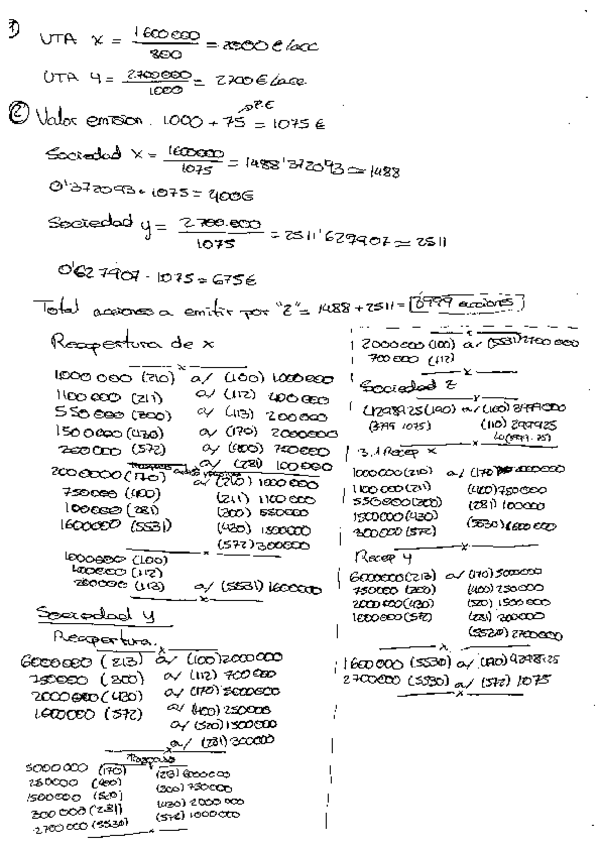 1)
UTA X = 1600000 / 800 = 2000 €/acc
UTA Y = 2700000 / 1000 = 2700 €/acc
② Valor emision. 1000 + 75 = 1075 €
→ P.E
Sociedad X = 1600000 / 1075 = 1488'372093 ≃ 1488
0'372093 · 1075 = 400€
Sociedad y = 2.700.000 / 1075 = 2511'627907 ≃ 2511
0'627907 · 1075 = 675€
Total acciones a emitir por "Z" = 1488 + 2511 = 3999 acciones
Reapertura de X
x
1000000 (210) a/ (100) 1000000
1100000 (211) a/ (112) 400000
550000 (300) a/ (113) 200000
1500000 (430) a/ (170) 2000000
300000 (572) a/ (400) 750000
a/ (281) 100000
2000000 (170) a/ (210) 1000000
750000 (400) (211) 1100000
100000 (281) (300) 550000
1600000 (5531) (430) 1500000
(572) 300000
x
1000000 (100)
400000 (112)
200000 (113) a/ (5531) 1600000
x
Sociedad y
Reapertura.
x
6000000 (213) a/ (100) 2000000
750000 (300) a/ (112) 700000
2000000 (430) a/ (170) 5000000
1000000 (572) a/ (400) 250000
a/ (520) 1500000
a/ (281) 300000
x
Traspaso
5000000 (170) (213) 6000000
250000 (400) (300) 750000
1500000 (520) (430) 2000000
300000 (281) (572) 1000000
2700000 (5530)
x
x
2000000 (100) a/ (5531) 2700000
700000 (112)
x
Sociedad Z
x
4298925 (190) a/ (100) 3999000
(3999·1075) (110) 299925
(3999·75)
x
3.1 Recep X
1000000 (210) a/ (170) 2000000
1100000 (211) (400) 750000
550000 (300) (281) 100000
1500000 (430) (5530) 1600000
300000 (572)
x
Recep Y
6000000 (213) a/ (170) 5000000
750000 (300) (400) 250000
2000000 (430) (520) 1500000
1000000 (572) (281) 300000
(5530) 2700000
x
1600000 (5530) a/ (190) 4298925
2700000 (5530) a/ (572) 1075
x